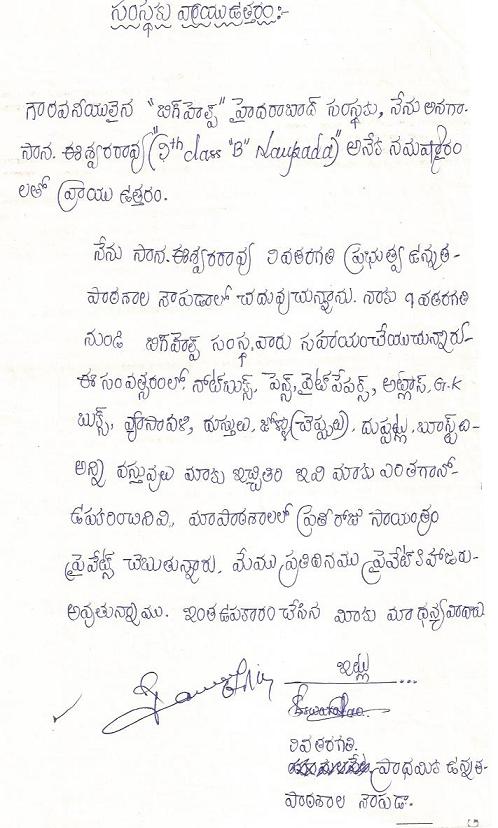 సంస్థకు వ్రాయు ఉత్తరం:-
గౌరవనీయులైన "బిగ్‌హెల్ప్" హైదరాబాద్ సంస్థకు, నేను అనగా
సాన. ఈశ్వరరావు ("9th class "B" Naupada)" అనేక నమస్కారం
లతో వ్రాయు ఉత్తరం.
నేను సాన. ఈశ్వరరావు 9వతరగతి ప్రభుత్వ ఉన్నత-
పాఠశాల నౌపడాలో చదువుచున్నాను. నాకు 9వతరగతి
నుండి బిగ్‌హెల్ప్ సంస్థ వారు సహాయం చేయుచున్నారు-
ఈ సంవత్సరంలో. నోట్‌బుక్స్, పెన్స్, వైట్‌పేపర్స్, అట్లాస్, G.K
బుక్స్, దుస్తులు, జోళ్ళు (చెప్పులు), దుప్పట్లు,
అన్ని వస్తువులు మాకు ఇచ్చితిరి ఇవి మాకు ఎంతగానో-
ఉపకరించినవి, మాపాఠశాలలో ప్రతిరోజు సాయంత్రం
ప్రైవేట్స్ చెబుతున్నారు. మేము ప్రతిదినము ప్రైవేట్‌కి హాజరు-
అవుతున్నాము. ఇంత ఉపకారం చేసిన మీకు మా ధన్యవాదాలు
ఇట్లు
9వతరగతి.
ప్రాథమిక ఉన్నత-
పాఠశాల నౌపడా.